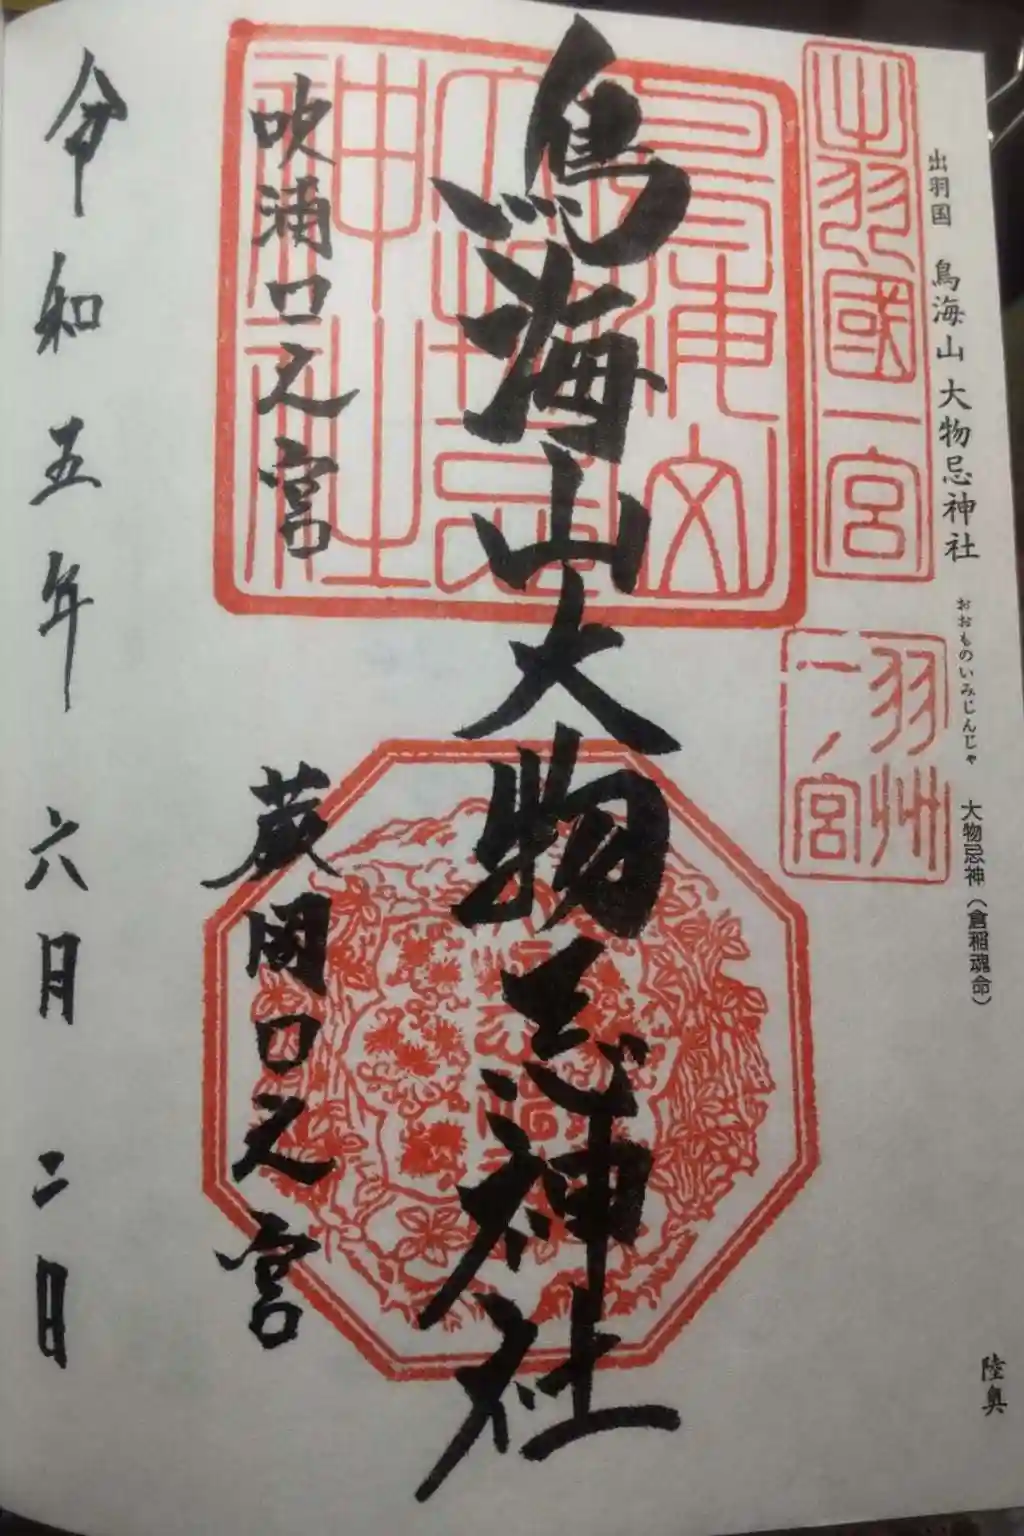 出羽国 鳥海山 大物忌神社 おおものいみじんじゃ 大物忌神(倉稲魂命)
陸奥
出羽國一宮
羽州
一ノ宮
鳥海山大物忌神社
吹浦口之宮
蕨岡口之宮
令和五年六月二日